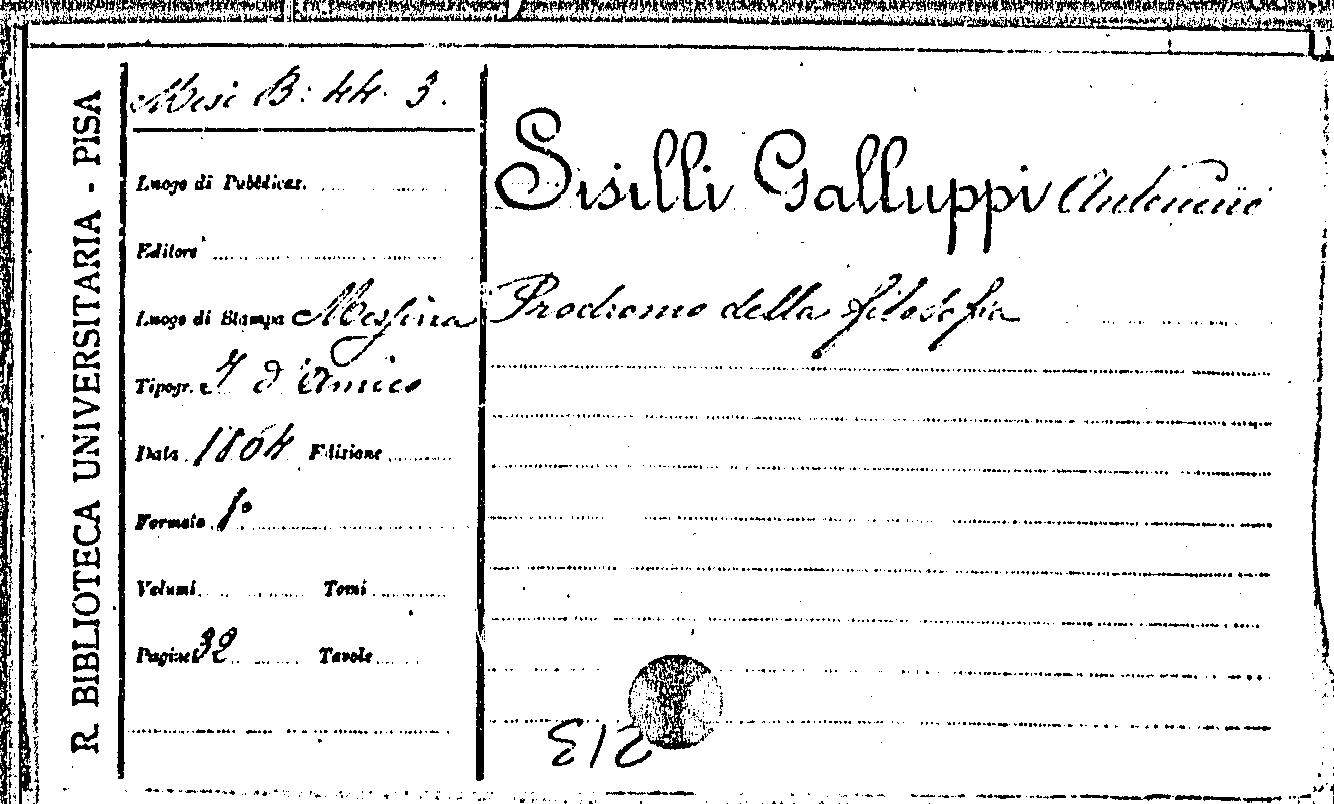 R. BIBLIOTECA UNIVERSITARIA - PISA
Misc B. 44. 3.
Luogo di Pubblicaz.
Editore
Luogo di Stampa Messina
Tipogr. d'Amico
Data 1864 Edizione
Formato
Volumi Tomi
Pagine 32 Tavole
Sisilli Galluppi Antonino
Prodromo della filosofia
213